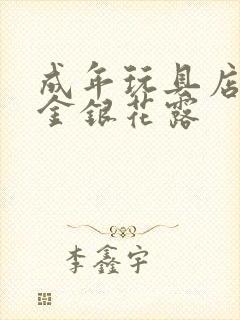 成年玩具店
金银花露
李鑫宇